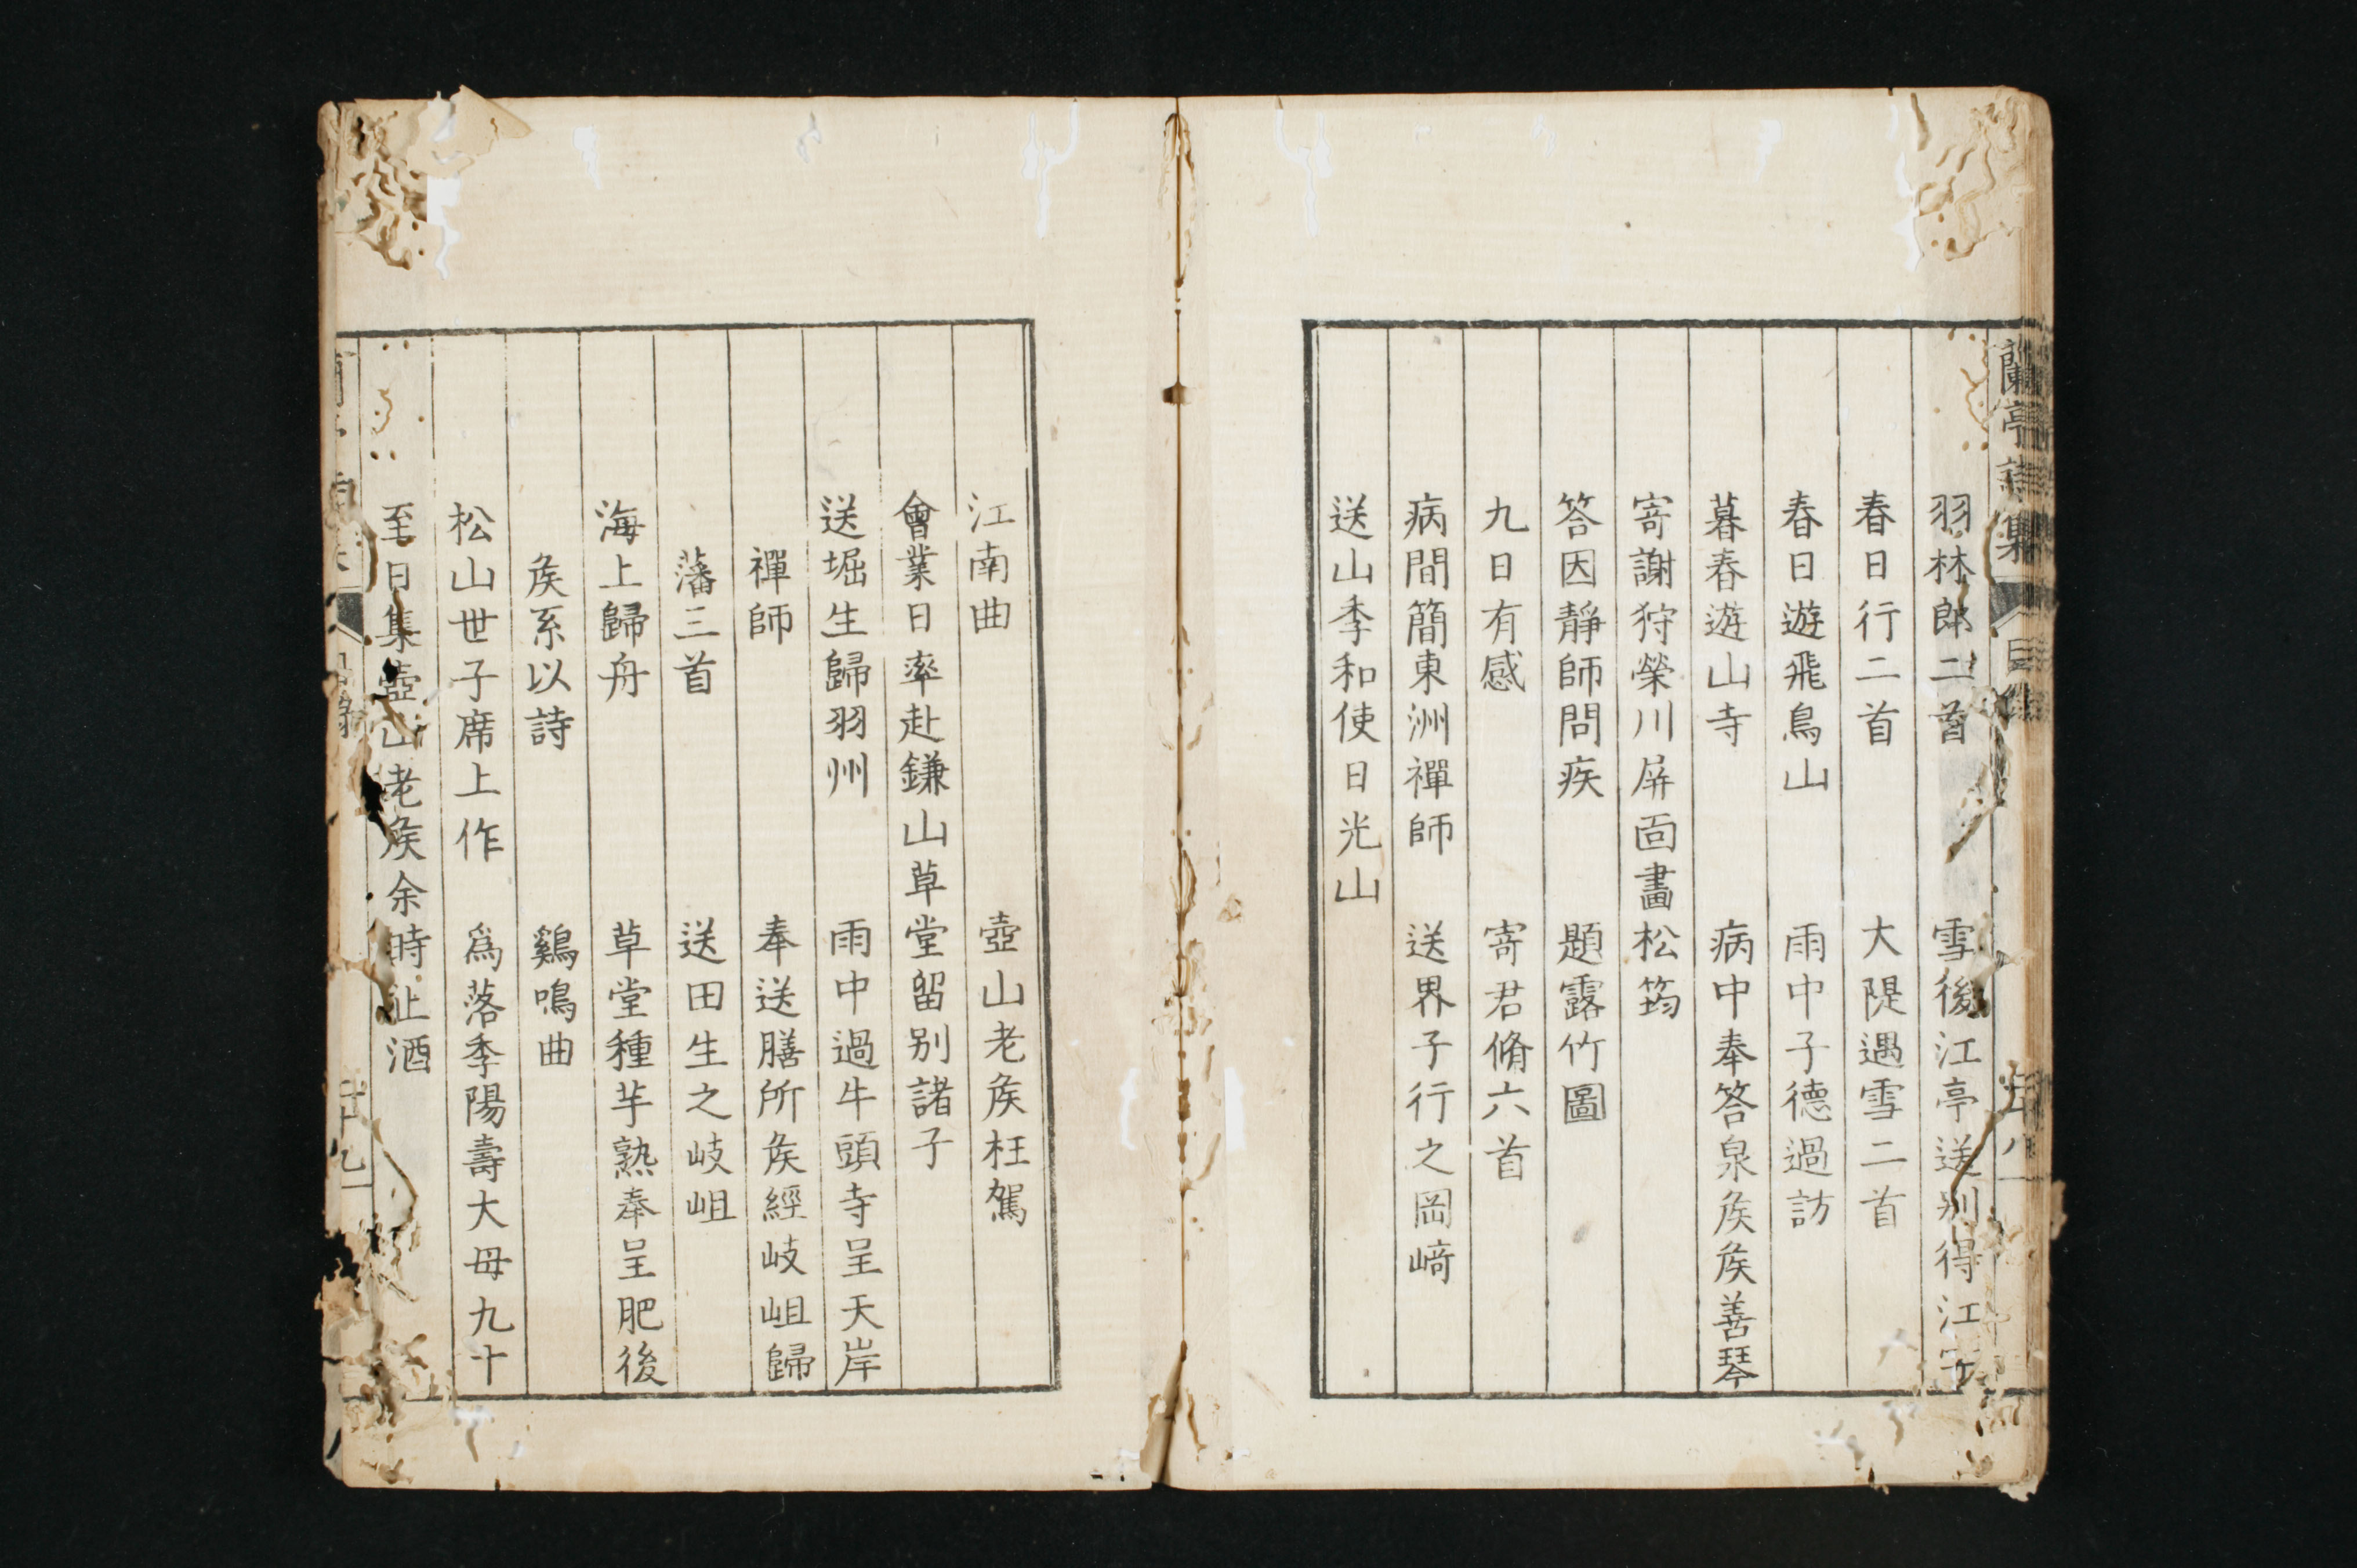 蘭亭詩集
羽林郎二首　雪後江亭送别得江字
春日行二首　大隄遇雪二首
春日遊飛鳥山　雨中子德過訪
暮春遊山寺　病中奉答泉矦矦善琴
寄謝狩榮川屏面畫松筠
答因靜師問疾　題露竹圖
九日有感　寄君脩六首
病間簡東洲禪師　送界子行之岡﨑
送山季和使日光山
江南曲　壺山老矦枉駕
會業日率赴鎌山草堂留别諸子
送堀生歸羽州　雨中過牛頭寺呈天岸
禪師　奉送膳所矦經岐岨歸
藩三首　送田生之岐岨
海上歸舟　草堂種芋熟奉呈肥後
矦系以詩　鷄鳴曲
松山世子席上作　爲落季陽壽大母九十
至日集壺山老矦余時止酒